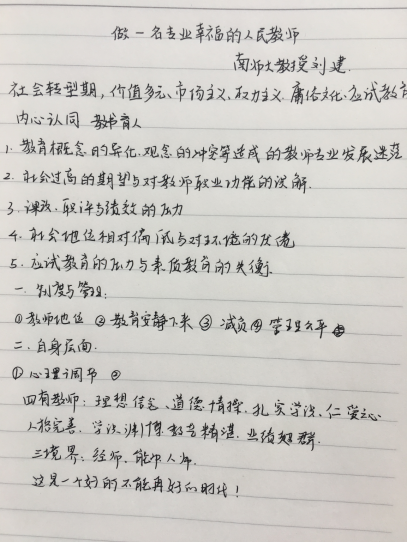 做一名专业幸福的人民教师
南师大教授刘建
社会转型期,价值多元、市场主义、权力主义、庸俗文化、应试教育
内心认同 教书育人
1. 教育概念的异化、观念的冲突等造成的教师专业发展迷茫
2. 社会过高的期望与对教师职业功能的误解.
3. 课改、职评与绩效的压力
4. 社会地位相对偏低与对环境的忧虑
5. 应试教育的压力与素质教育的失衡.
一. 制度与管理:
①教师地位 ②教育安静下来 ③减负 ④管理公平
二. 自身层面.
①心理调节 ②
四有教师: 理想信念、道德情操、扎实学识、仁爱之心
人格完善、学识渊博、教艺精湛、业绩超群.
三境界: 经师、能师、人师.
这是一个好的不能再好的时代!